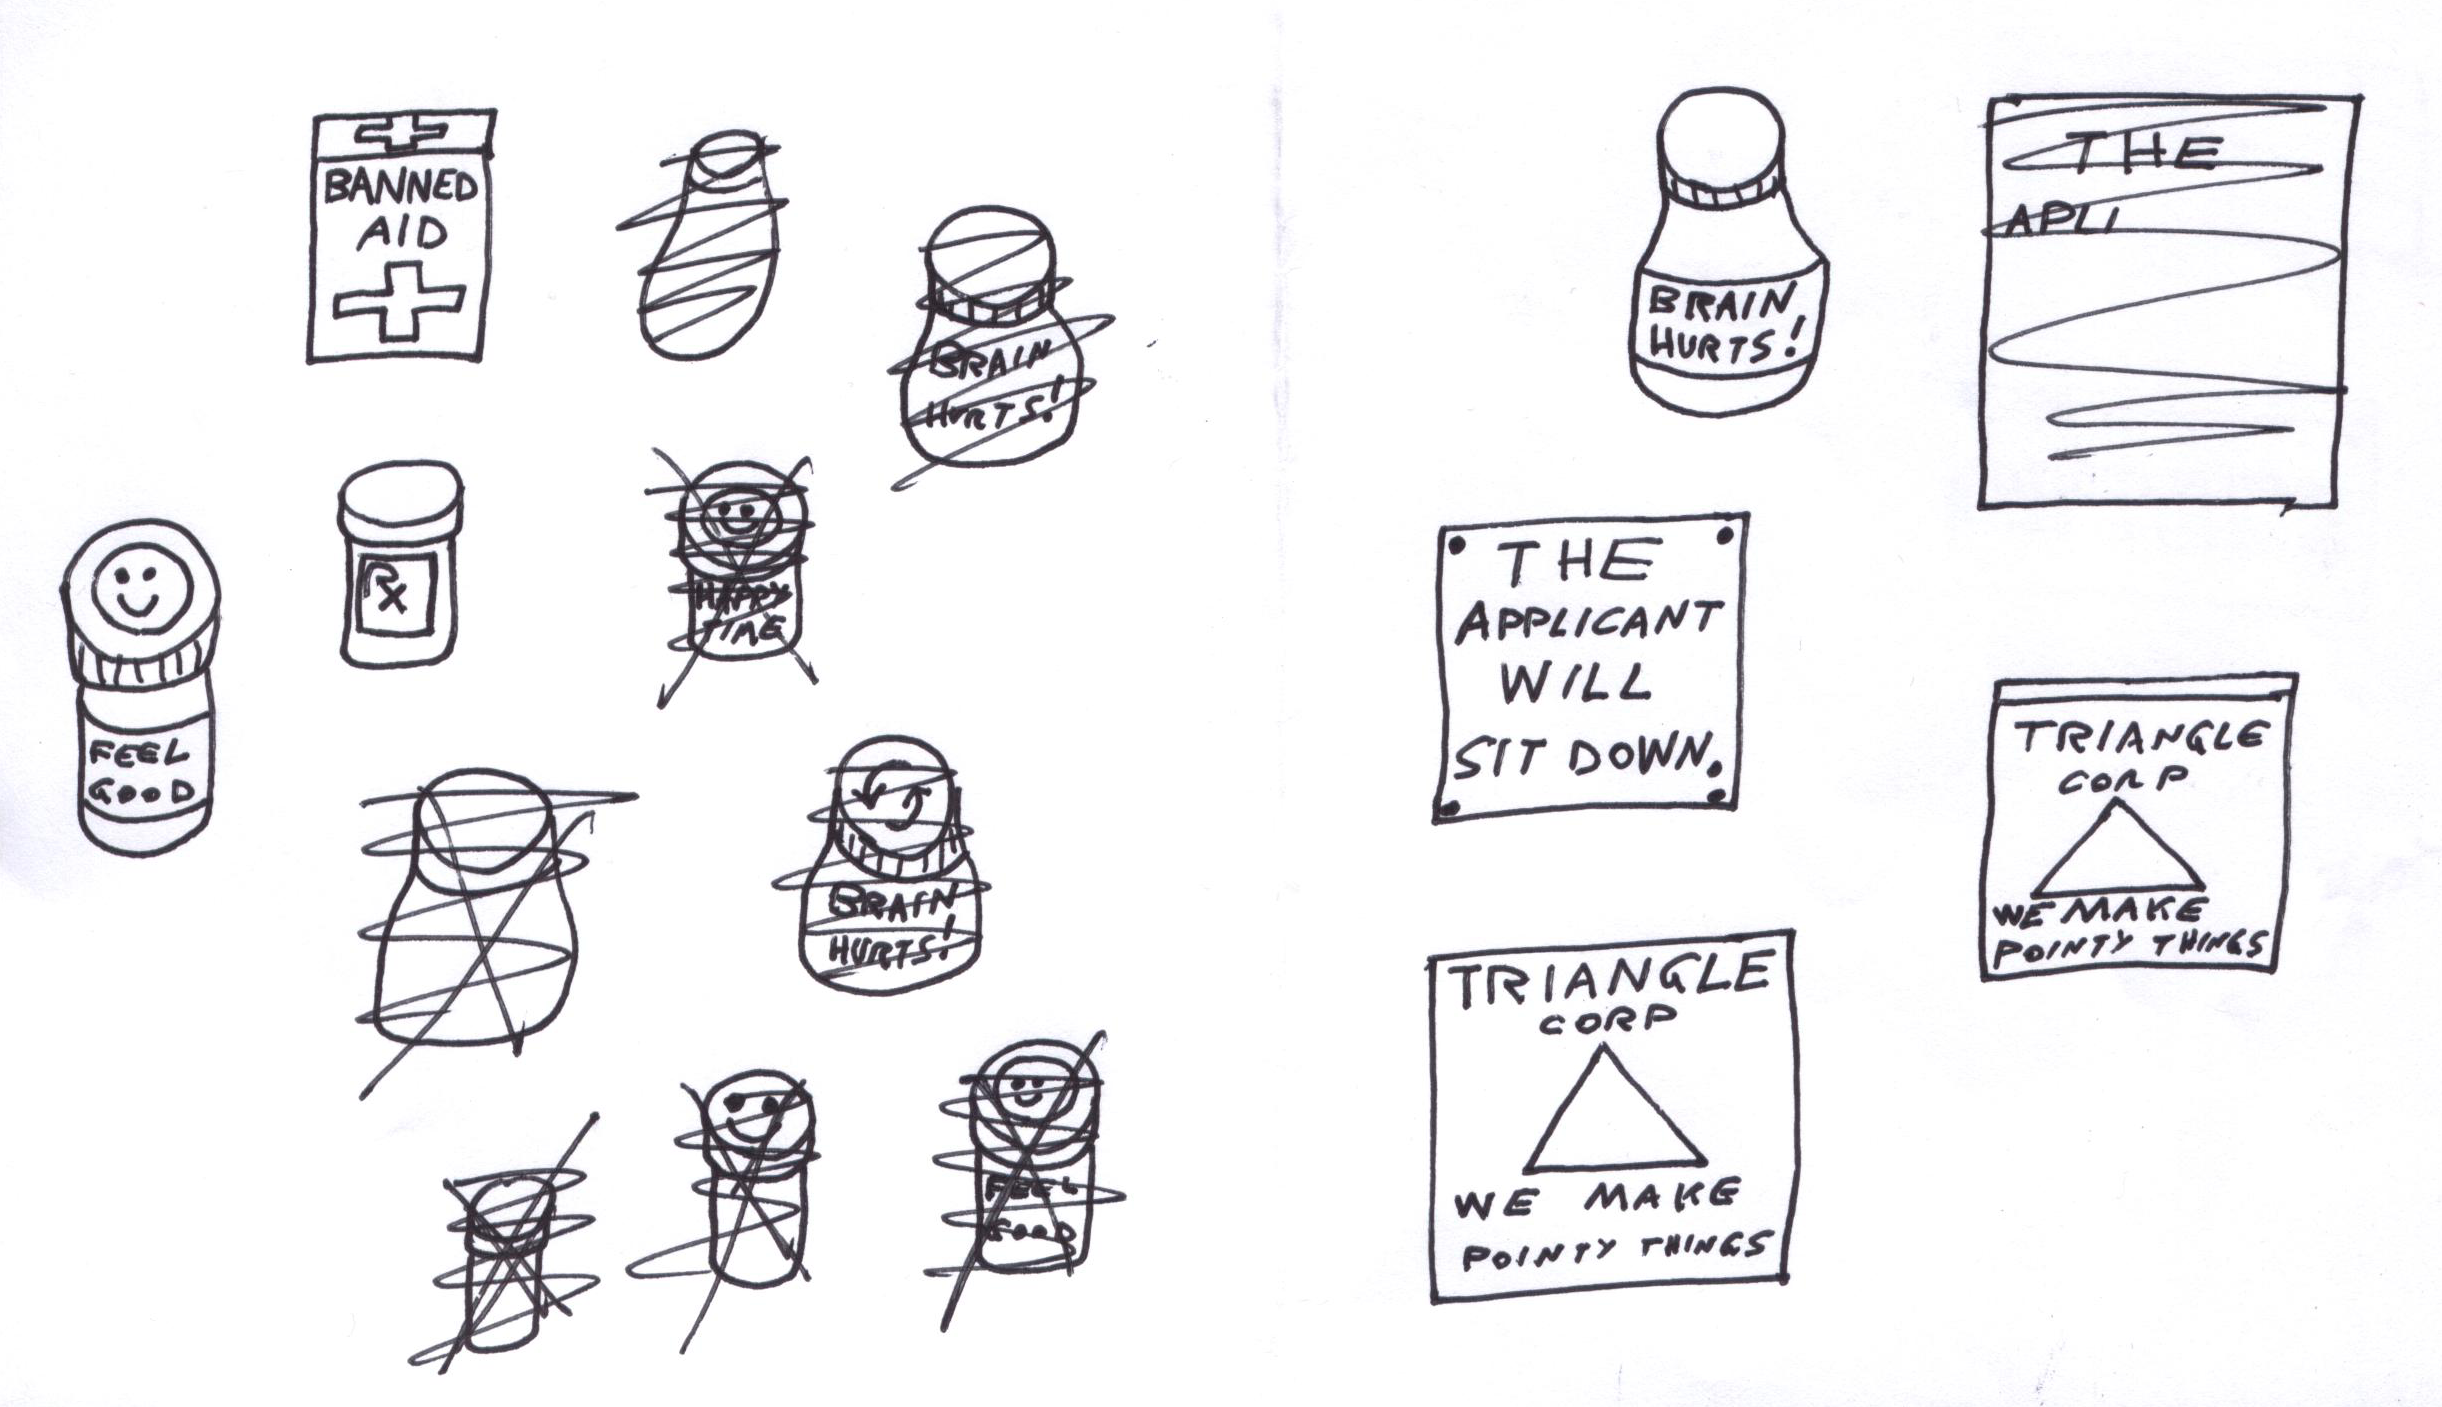 BANNED
AID
BRAIN
HURTS!
Rx
HAPPY
TIME
FEEL
GOOD
BRAIN
HURTS!
FEEL
GOOD
BRAIN
HURTS!
THE
APLI
THE
APPLICANT
WILL
SIT DOWN.
TRIANGLE
CORP
WE MAKE
POINTY THINGS
TRIANGLE
CORP
WE MAKE
POINTY THINGS